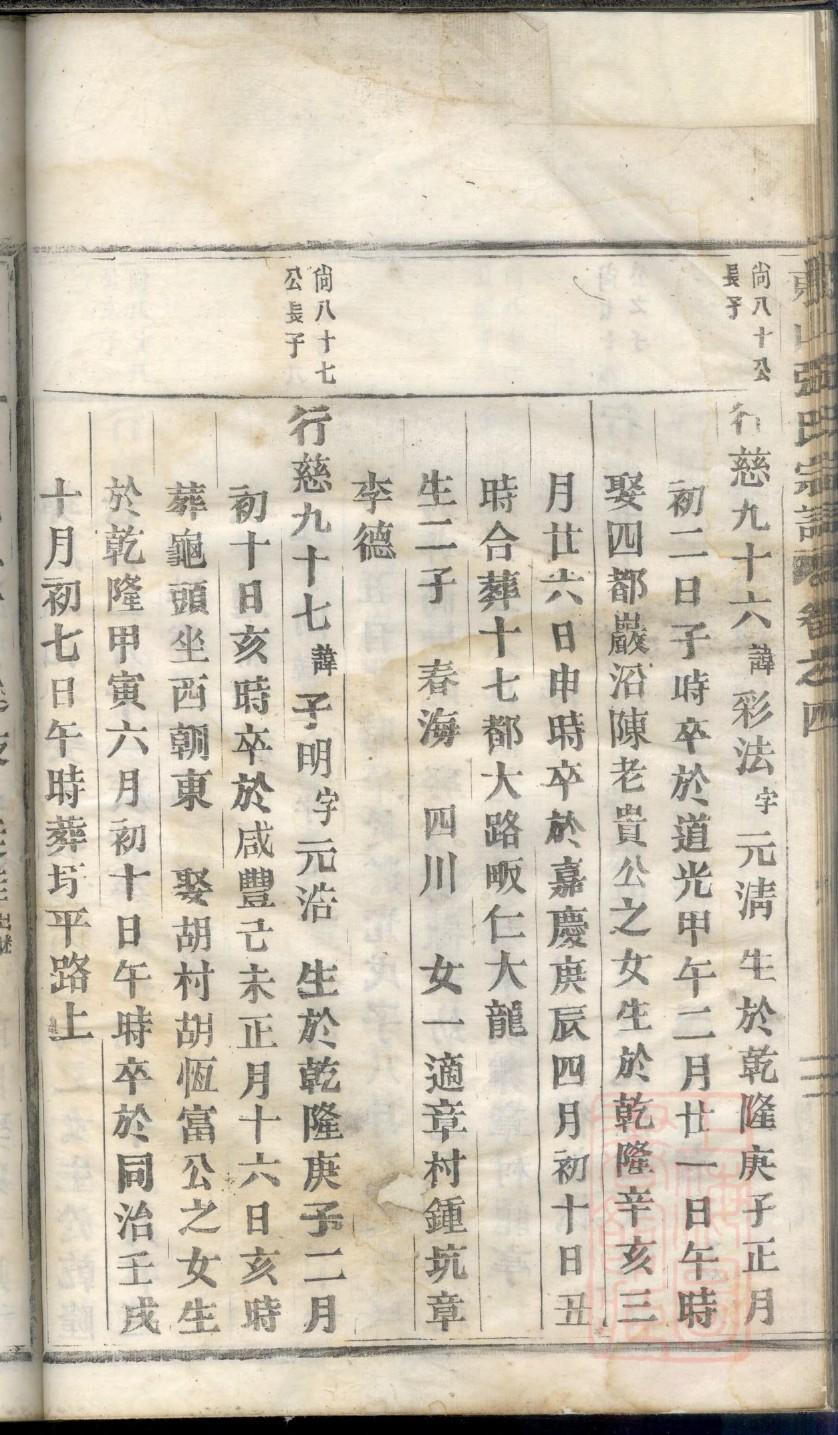 張氏宗譜 卷之四
二
尙八十公
長子
行慈九十六諱彩法字元淸 生於乾隆庚子正月
初二日子時卒於道光甲午二月廿一日午時
娶四都巖沿陳老貴公之女生於乾隆辛亥三
月廿六日申時卒於嘉慶庚辰四月初十日丑
時合葬十七都大路畈仁大龍
生二子 春海 四川 女一適章村鍾坑章
李德
尙八十七
公長子
行慈九十七諱子明字元浩 生於乾隆庚子二月
初十日亥時卒於咸豐己未正月十六日亥時
葬龜頭坐西朝東 娶胡村胡恆富公之女生
於乾隆甲寅六月初十日午時卒於同治壬戌
十月初七日午時葬圬平路上